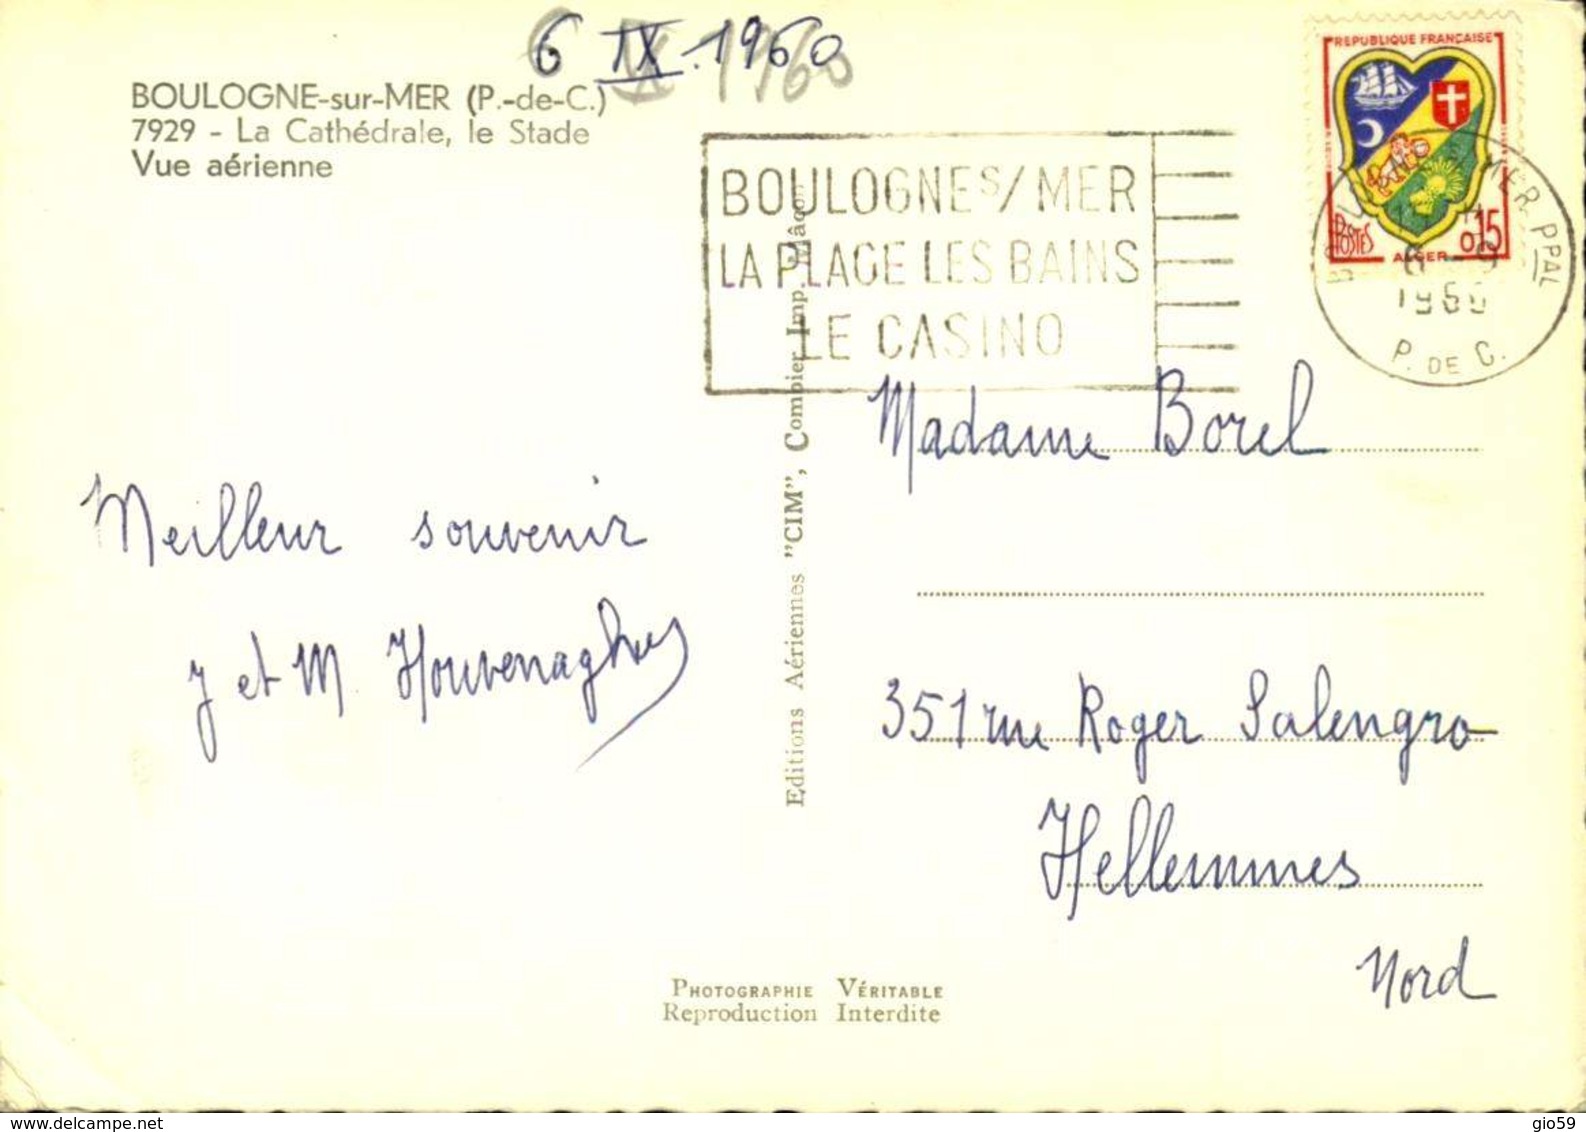 6 IX.1960
BOULOGNE-sur-MER (P.-de-C.)
7929 - La Cathédrale, le Stade
Vue aérienne
BOULOGNE S/MER
LA PLAGE LES BAINS
LE CASINO
REPUBLIQUE FRANÇAISE
POSTES
0,15
ALGER
MER PPAL
6 - 9
1960
P. DE C.
Madame Borel
351 rue Roger Salengro
Hellemmes
Nord
Meilleur souvenir
J et M Houvenaghes
Editions Aériennes "CIM", Combier Imp. Mâcon
PHOTOGRAPHIE VÉRITABLE
Reproduction Interdite
www.delcampe.net
gio59